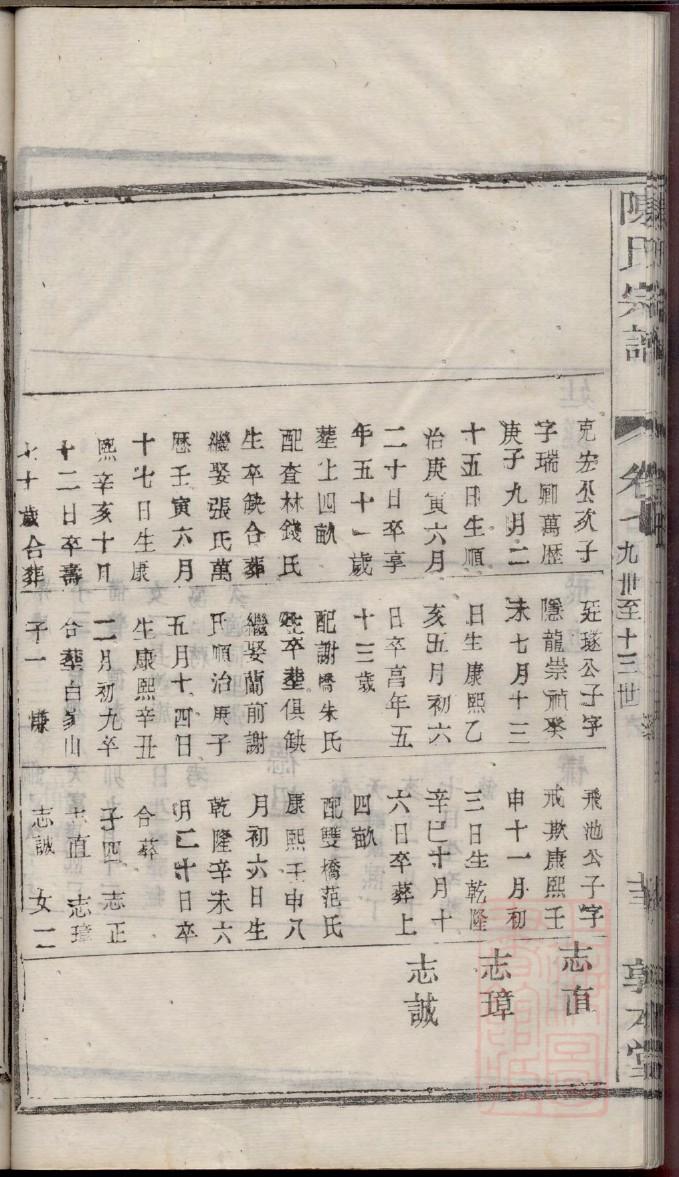 陳氏宗譜
卷十 九世至十三世
敦本堂
克宏公次子
字瑞卿萬歷
庚子九月二
十五日生順
治庚寅六月
二十日卒享
年五十一歲
葬上四畝
配查林錢氏
生卒缺合葬
繼娶張氏萬
歷壬寅六月
十七日生康
熙辛亥十月
十二日卒壽
七十歲合葬
廷璲公子字
隱龍崇禎癸
未七月十三
日生康熙乙
亥五月初六
日卒享年五
十三歲
配謝橋朱氏
生卒葬俱缺
繼娶蘭前謝
氏順治庚子
五月十四日
生康熙辛丑
二月初九卒
合葬白象山
子一 慊
飛池公子字
戒欺康熙壬
申十一月初
三日生乾隆
辛巳十月十
六日卒葬上
四畝
配雙橋范氏
康熙壬申八
月初六日生
乾隆辛未六
月二十日卒
合葬
子四 志正
志直 志璋
志誠 女二
志直
志璋
志誠